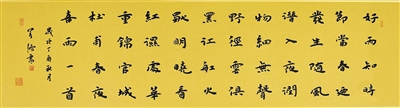 好雨知時
節當春迺
發生隨風
潛入夜潤
物細無聲
野徑雲俱
黑江船火
獨明曉看
紅濕處華
重錦官城
杜甫春夜
喜雨一首
歲次丁酉秋月